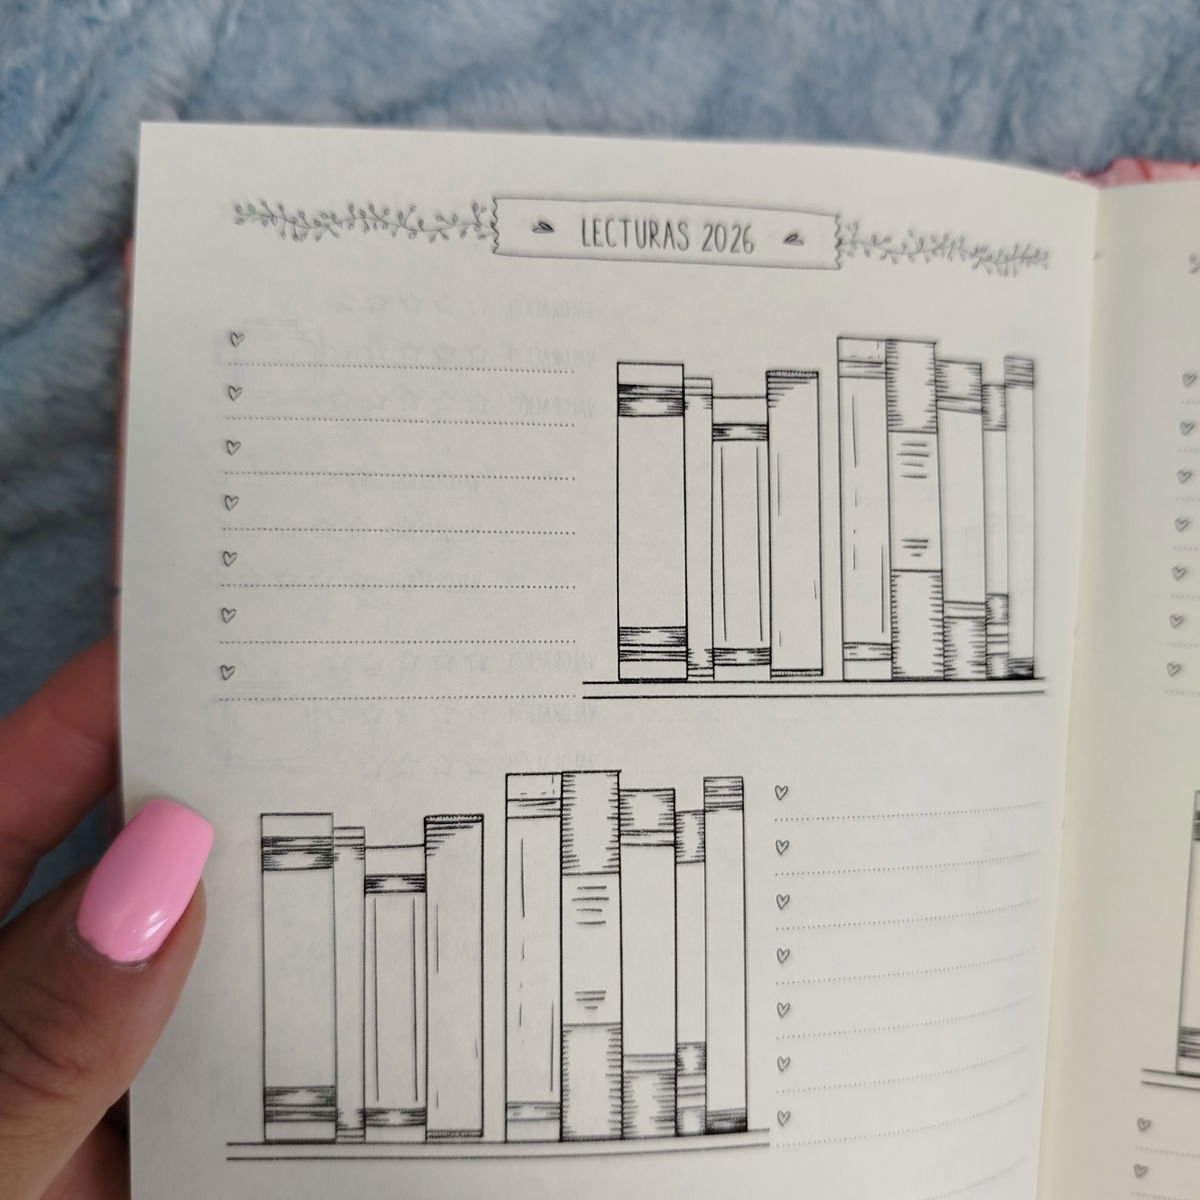 LECTURAS 2026